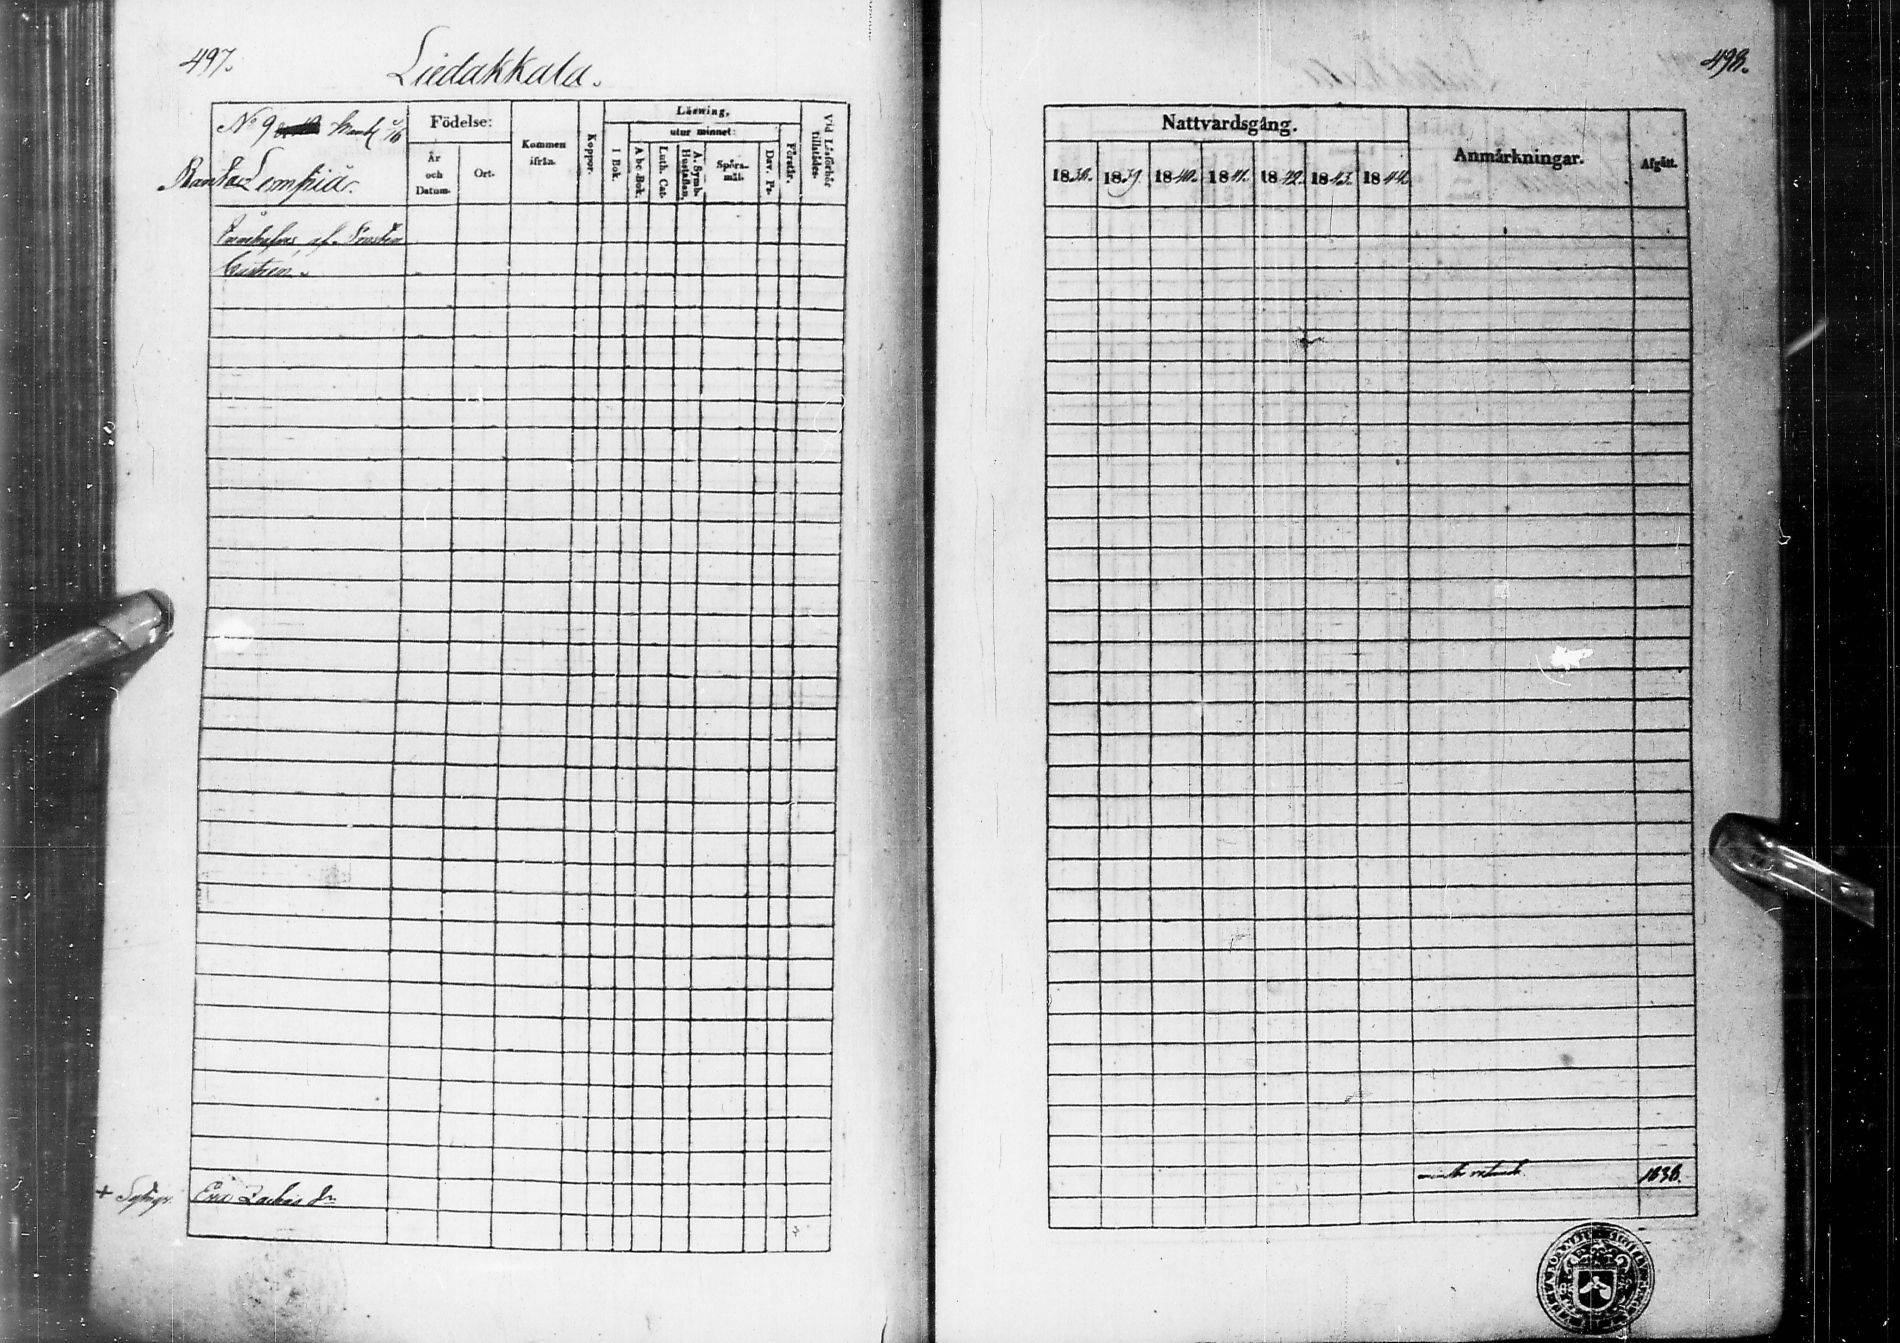 497.
Liedakkala.
N:o 9 Mantl 1/6
Ranta Lempiä.
Födelse:
År och Datum.
Ort.
Kommen ifrån.
Koppor.
Läsning,
utur minnet:
I Bok.
Abc Bok.
Luth. Cat.
A. Symb. Hustaflan.
Spörs-mål.
Dav. Ps.
Förstår.
Vid Läsförhör tillstädes.
Innehafves af Prosten
Castren.
+ Sytngr.
Eva Zachris dr
498.
Nattvardsgång.
1838. 1839 1840. 1841. 1842. 1843. 1844.
Anmärkningar.
Afgått.
1838.